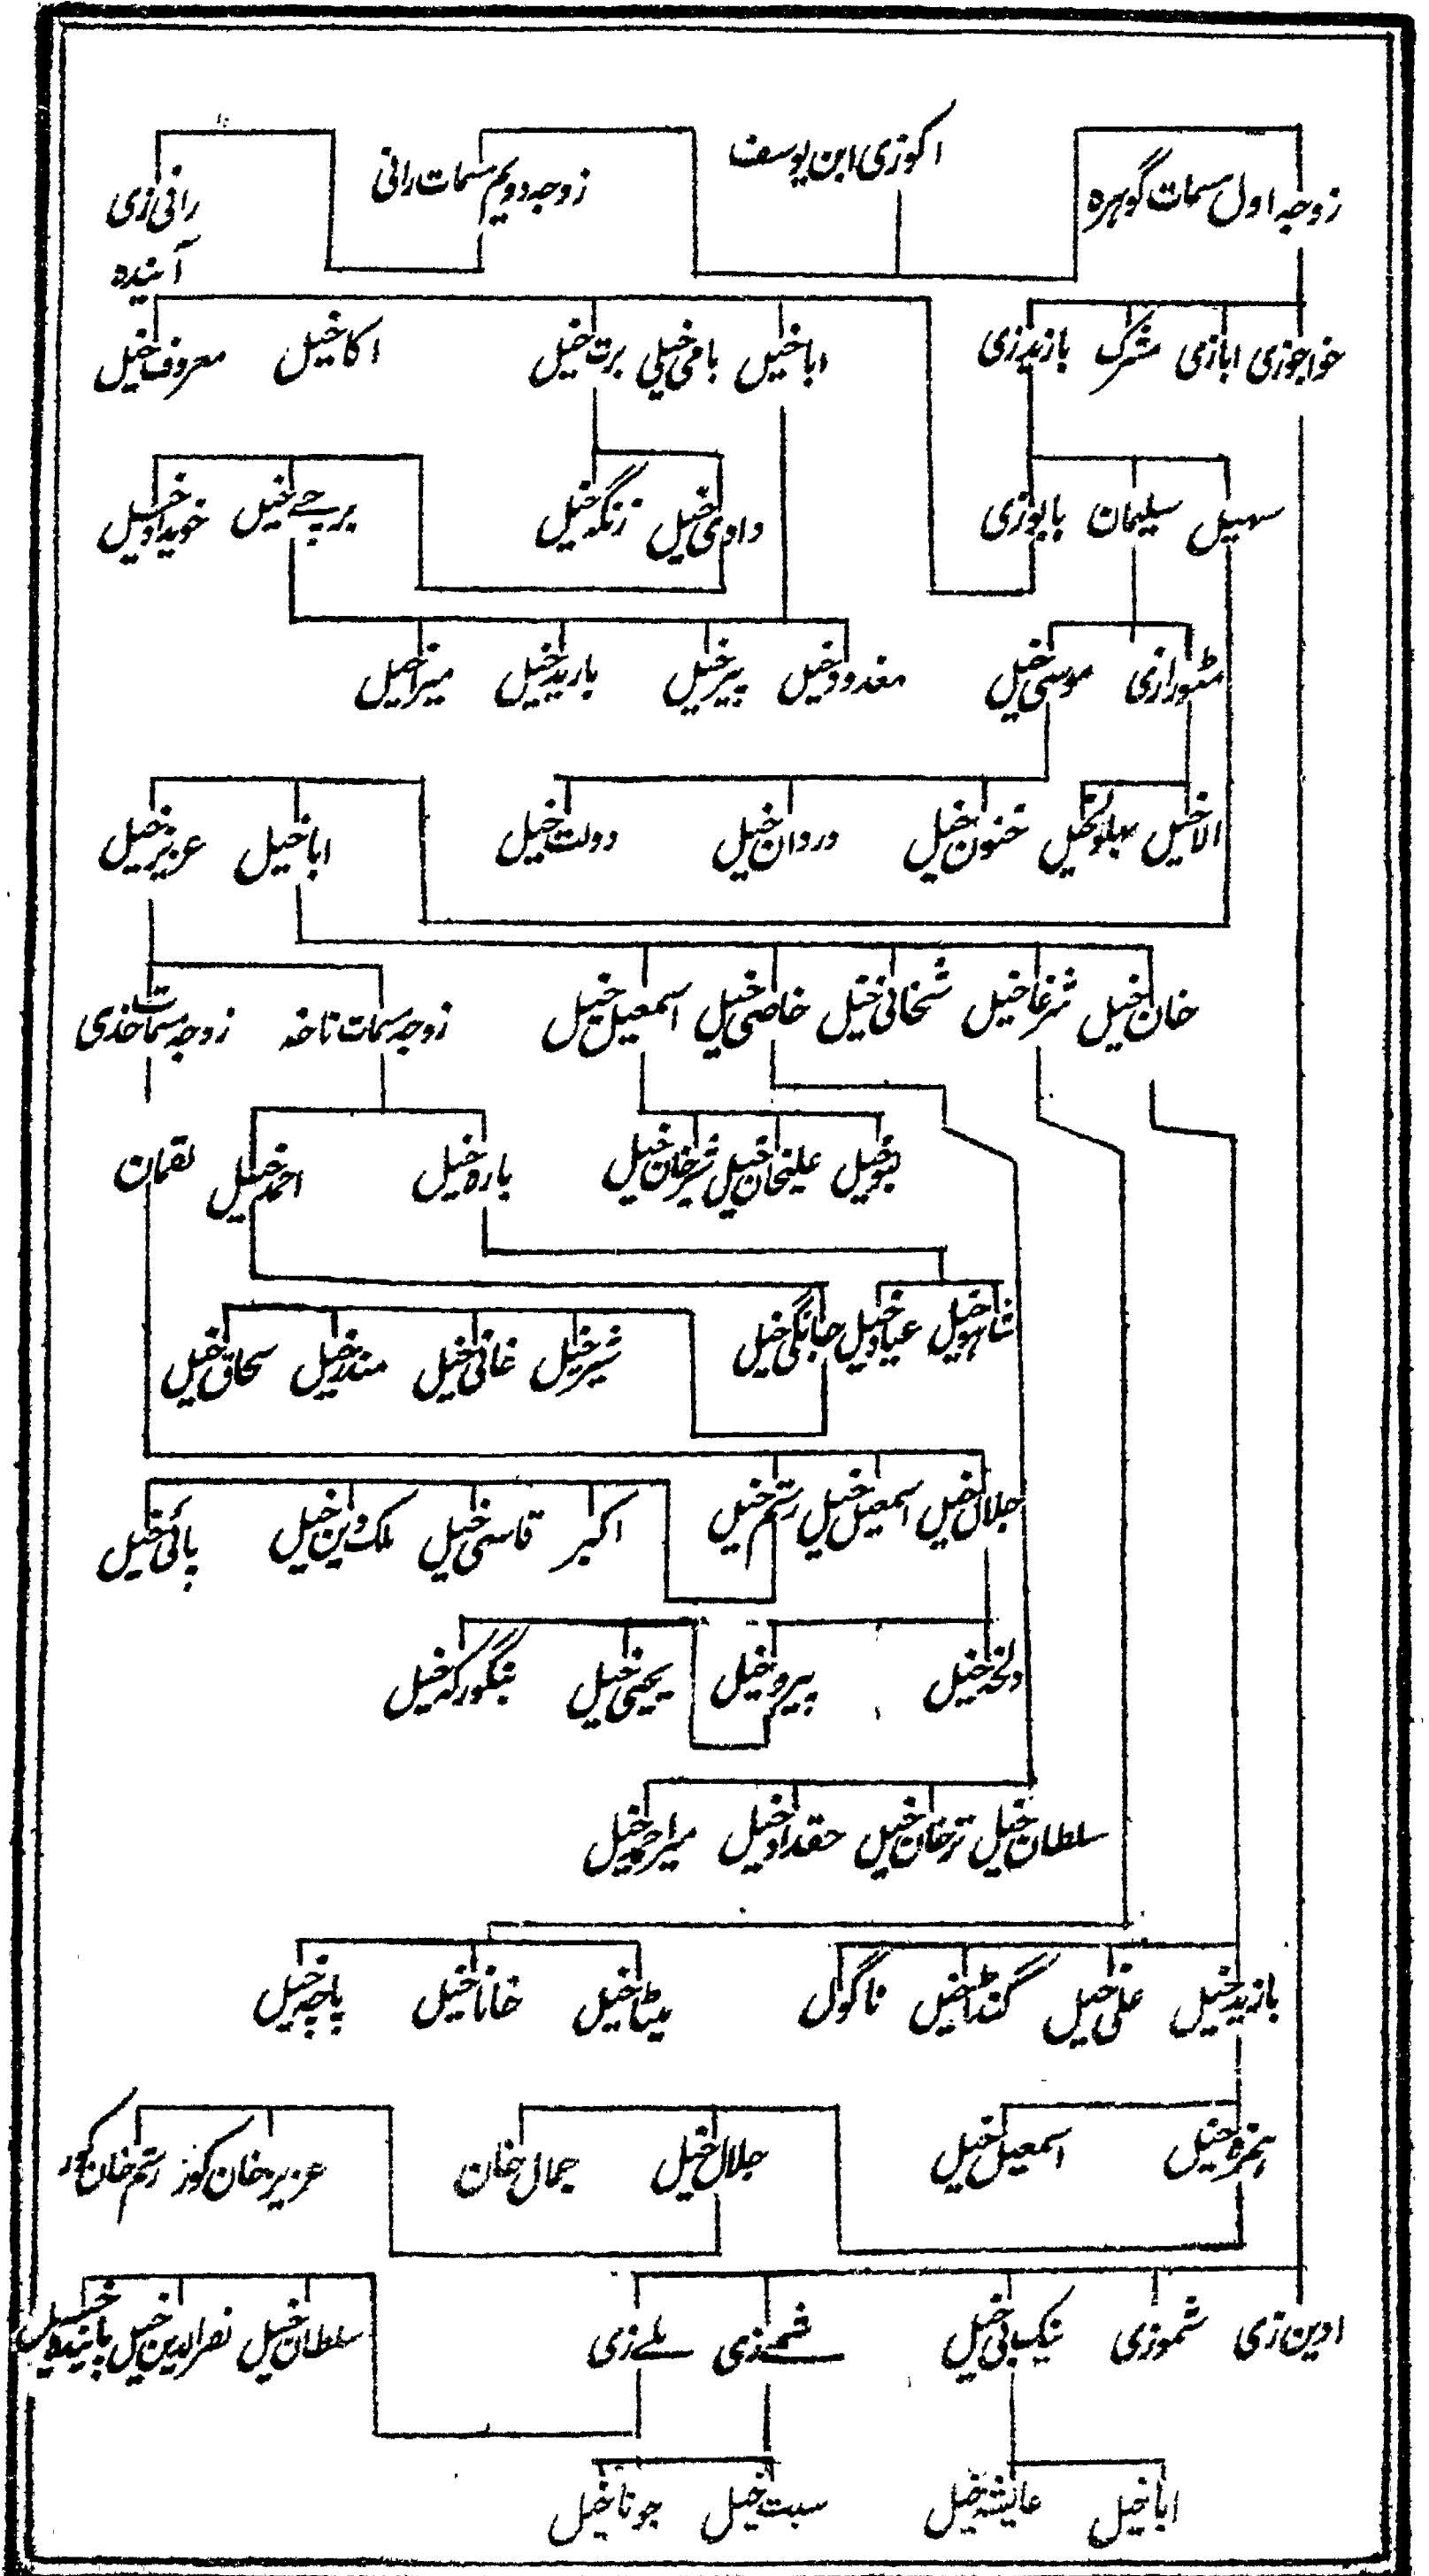 زوجہ اول سمات گوہرہ اکوزی ابن یوسف زوجہ دویم سمات رانی رانی زی
آیندہ
خواجوزی ابازی مترک بازیدزی اباخیل بامی خیل برت خیل اکاخیل معروف خیل
سہیل سلیمان بابوزی دادی خیل زنگہ خیل پرچے خیل خویدادخیل
مٹورازی موسی خیل مغدودخیل پیرخیل باریدخیل میراخیل
الاخیل بہلولخیل خنون خیل دردان خیل دولت خیل اباخیل عزیزخیل
خان خیل شرغاخیل شخانی خیل خاصی خیل اسمعیل خیل زوجہ سمات ناخہ زوجہ سمات خذی
علیخان خیل شیرخان خیل بارہ خیل احمدخیل لقمان
شاہوخیل عیادخیل جانگی خیل شیرخیل غانی خیل مندرخیل سحاق خیل
جلال خیل اسمعیل خیل رستم خیل اکبر قاسی خیل ملک دین خیل پائی خیل
دلخہ خیل پیروخیل یحیی خیل
سلطان خیل ترخان خیل حقدادخیل میراحمدخیل
بازیدخیل علی خیل گنداخیل ناگول میٹاخیل خاناخیل پاچہ خیل
ہمزہ خیل اسمعیل خیل جلال خیل جمال خان عزیز خان کور رستم خان کور
ادین زی شموزی نیک پی خیل شمے زی ملے زی سلطان خیل نصرالدین خیل پایندہ خیل
اباخیل عایشہ خیل سبت خیل جوناخیل